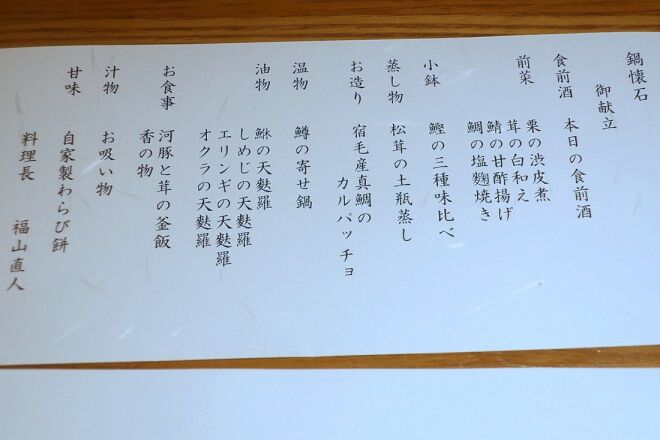 鍋懐石
御献立
食前酒 本日の食前酒
前菜 栗の渋皮煮
茸の白和え
鯖の甘酢揚げ
鯛の塩麹焼き
小鉢 鰹の三種味比べ
蒸し物 松茸の土瓶蒸し
お造り 宿毛産真鯛の
カルパッチョ
温物 鱒の寄せ鍋
油物 鮴の天麩羅
しめじの天麩羅
エリンギの天麩羅
オクラの天麩羅
お食事 河豚と茸の釜飯
香の物
汁物 お吸い物
甘味 自家製わらび餅
料理長 福山直人